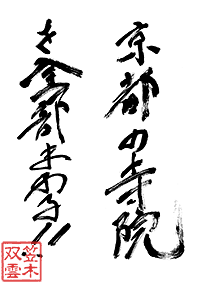 京都の寺院
を全部まわる!!
笠木
双雲